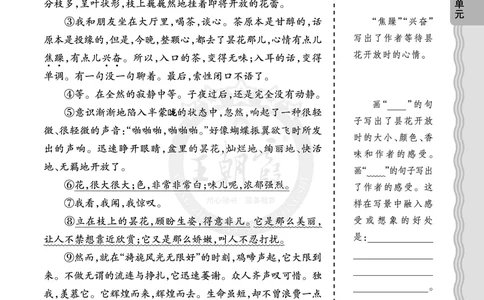 分枝多，呈叶状形，枝上巍巍然地挂着即将开放的花蕾。
③我和朋友坐在大厅里，喝茶，谈心。茶原本是甘醇的，话
原本是投缘的，但是，今晚，整颗心，都去了昙花那儿，心情有点儿
焦躁，有点儿兴奋。所以，入口的茶，变得无味；入耳的话，变得
单调。有一句没一句聊着。最后，索性闭口不语了。
④等。在全然的寂静中等。子夜过后，还是完全没有动静。
⑤意识渐渐地陷入半蒙眬的状态中，忽然，响起了一种很轻
微、很轻微的声音：“啪啪啪，啪啪啪。”好像蝴蝶振翼欲飞时所发
出的声响。迅速睁开眼睛，盆里的昙花，灿烂地、绚丽地、快活
地、无羁地开放了。
⑥花，很大很大；色，非常非常白；味儿呢，浓郁强烈。
⑦我看，我闻，我惊叹。
⑧立在枝上的昙花，顾盼生姿，得意非凡。它是那么美丽，
让人不禁想靠近欣赏；它又是那么娇嫩，叫人不忍打扰。
⑨然而，就在“旖旎风光无限好”的时刻，鸡啼声起，它大限到
来。不做无谓的流连与挣扎，它迅速萎谢。众人齐声叹可惜。独
我，羡慕它。它辉煌而来，辉煌而去。生命虽短，却不曾浪费一点
单元
“焦躁”“兴奋”
写出了作者等待昙
花开放时的心情。
画“____”的句
子写出了昙花开放
时的大小、颜色、香
味和作者的感受。
画“﹏﹏”的句子写出
了作者的感受。这
样在写景中融入感
受或想象的好处
是：
。
王朝霞